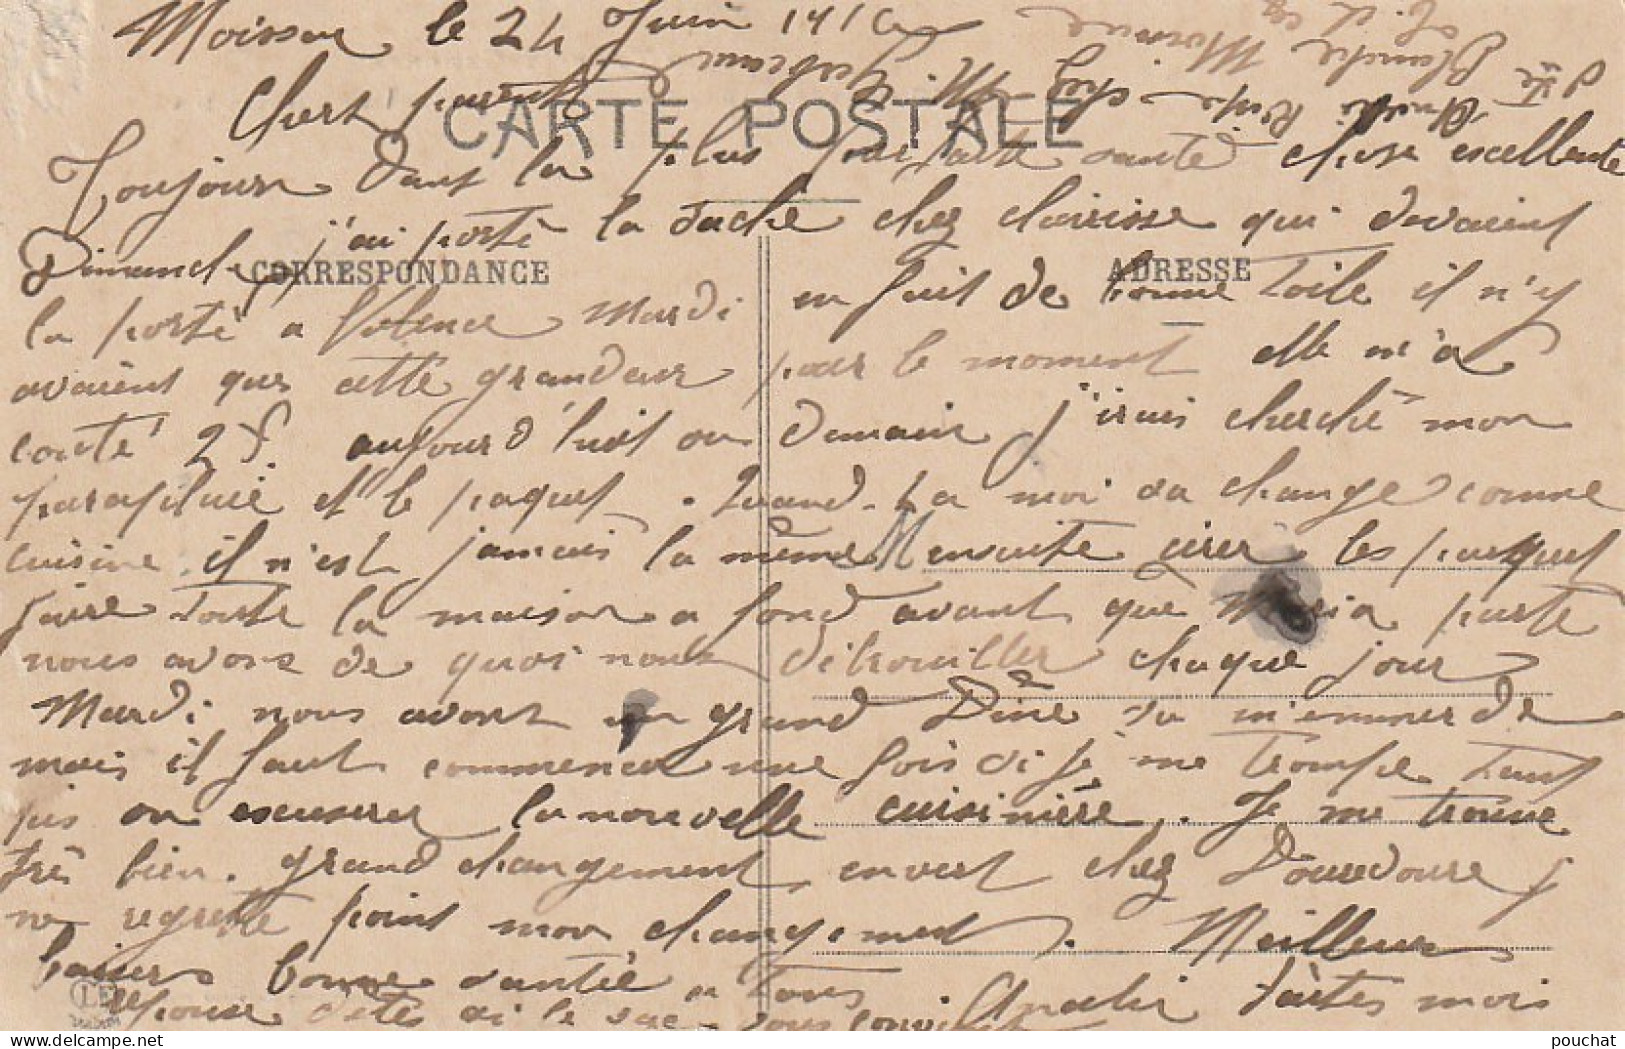 Moissac le 24 Juin 191
Chers parents
CARTE POSTALE
Toujours dans la plus parfaite santé chose excellente
Dimanche j'ai porté la tache chez clarisse qui davaient
CORRESPONDANCE
ADRESSE
la porté a Valence Mardi en fait de bonne toile il n'y
avaient que cette grandeur pour le moment elle m'a
couté 2 f. aujourd'huit ou demain j'irais cherché mon
parapluie et le paquet. Quand. La moi sa change comme
cuisine. il n'est jamais la même ensuite cirer les parquet
faire toute la maison a fond avant que Maria parte
nous avons de quoi nous détrouiller chaque jour
Mardi nous avont un grand Diné sa m'emmerde
mais il faut commencer une fois si je me trompe tant
pis on excuserer la nouvelle cuisinière. Je me trouve
très bien. grand changement envert chez Douredoure j
ne regrette point mon changement. Meilleur
baisers bonne santée a tous Anali faites mois
reponse dètes si le sac vous
Blanche
chez
LF
pouchat